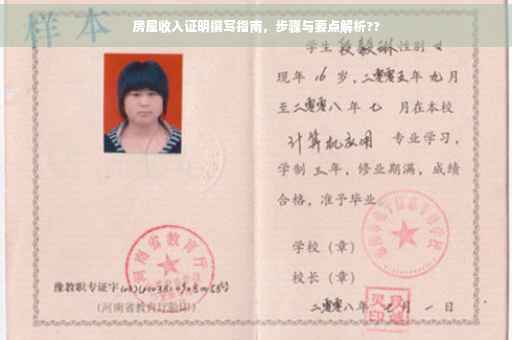 房屋收入证明撰写指南，步骤与要点解析??
样本
学生段毅琳性别女
现年16岁，二零零五年九月
至二零零八年七月在本校
计算机应用 专业学习，
学制三年，修业期满，成绩
合格，准予毕业。
学校（章）
校长（章）
二零零八年七月一日
河南省教育厅
豫教职专证字
（河南省教育厅验印）